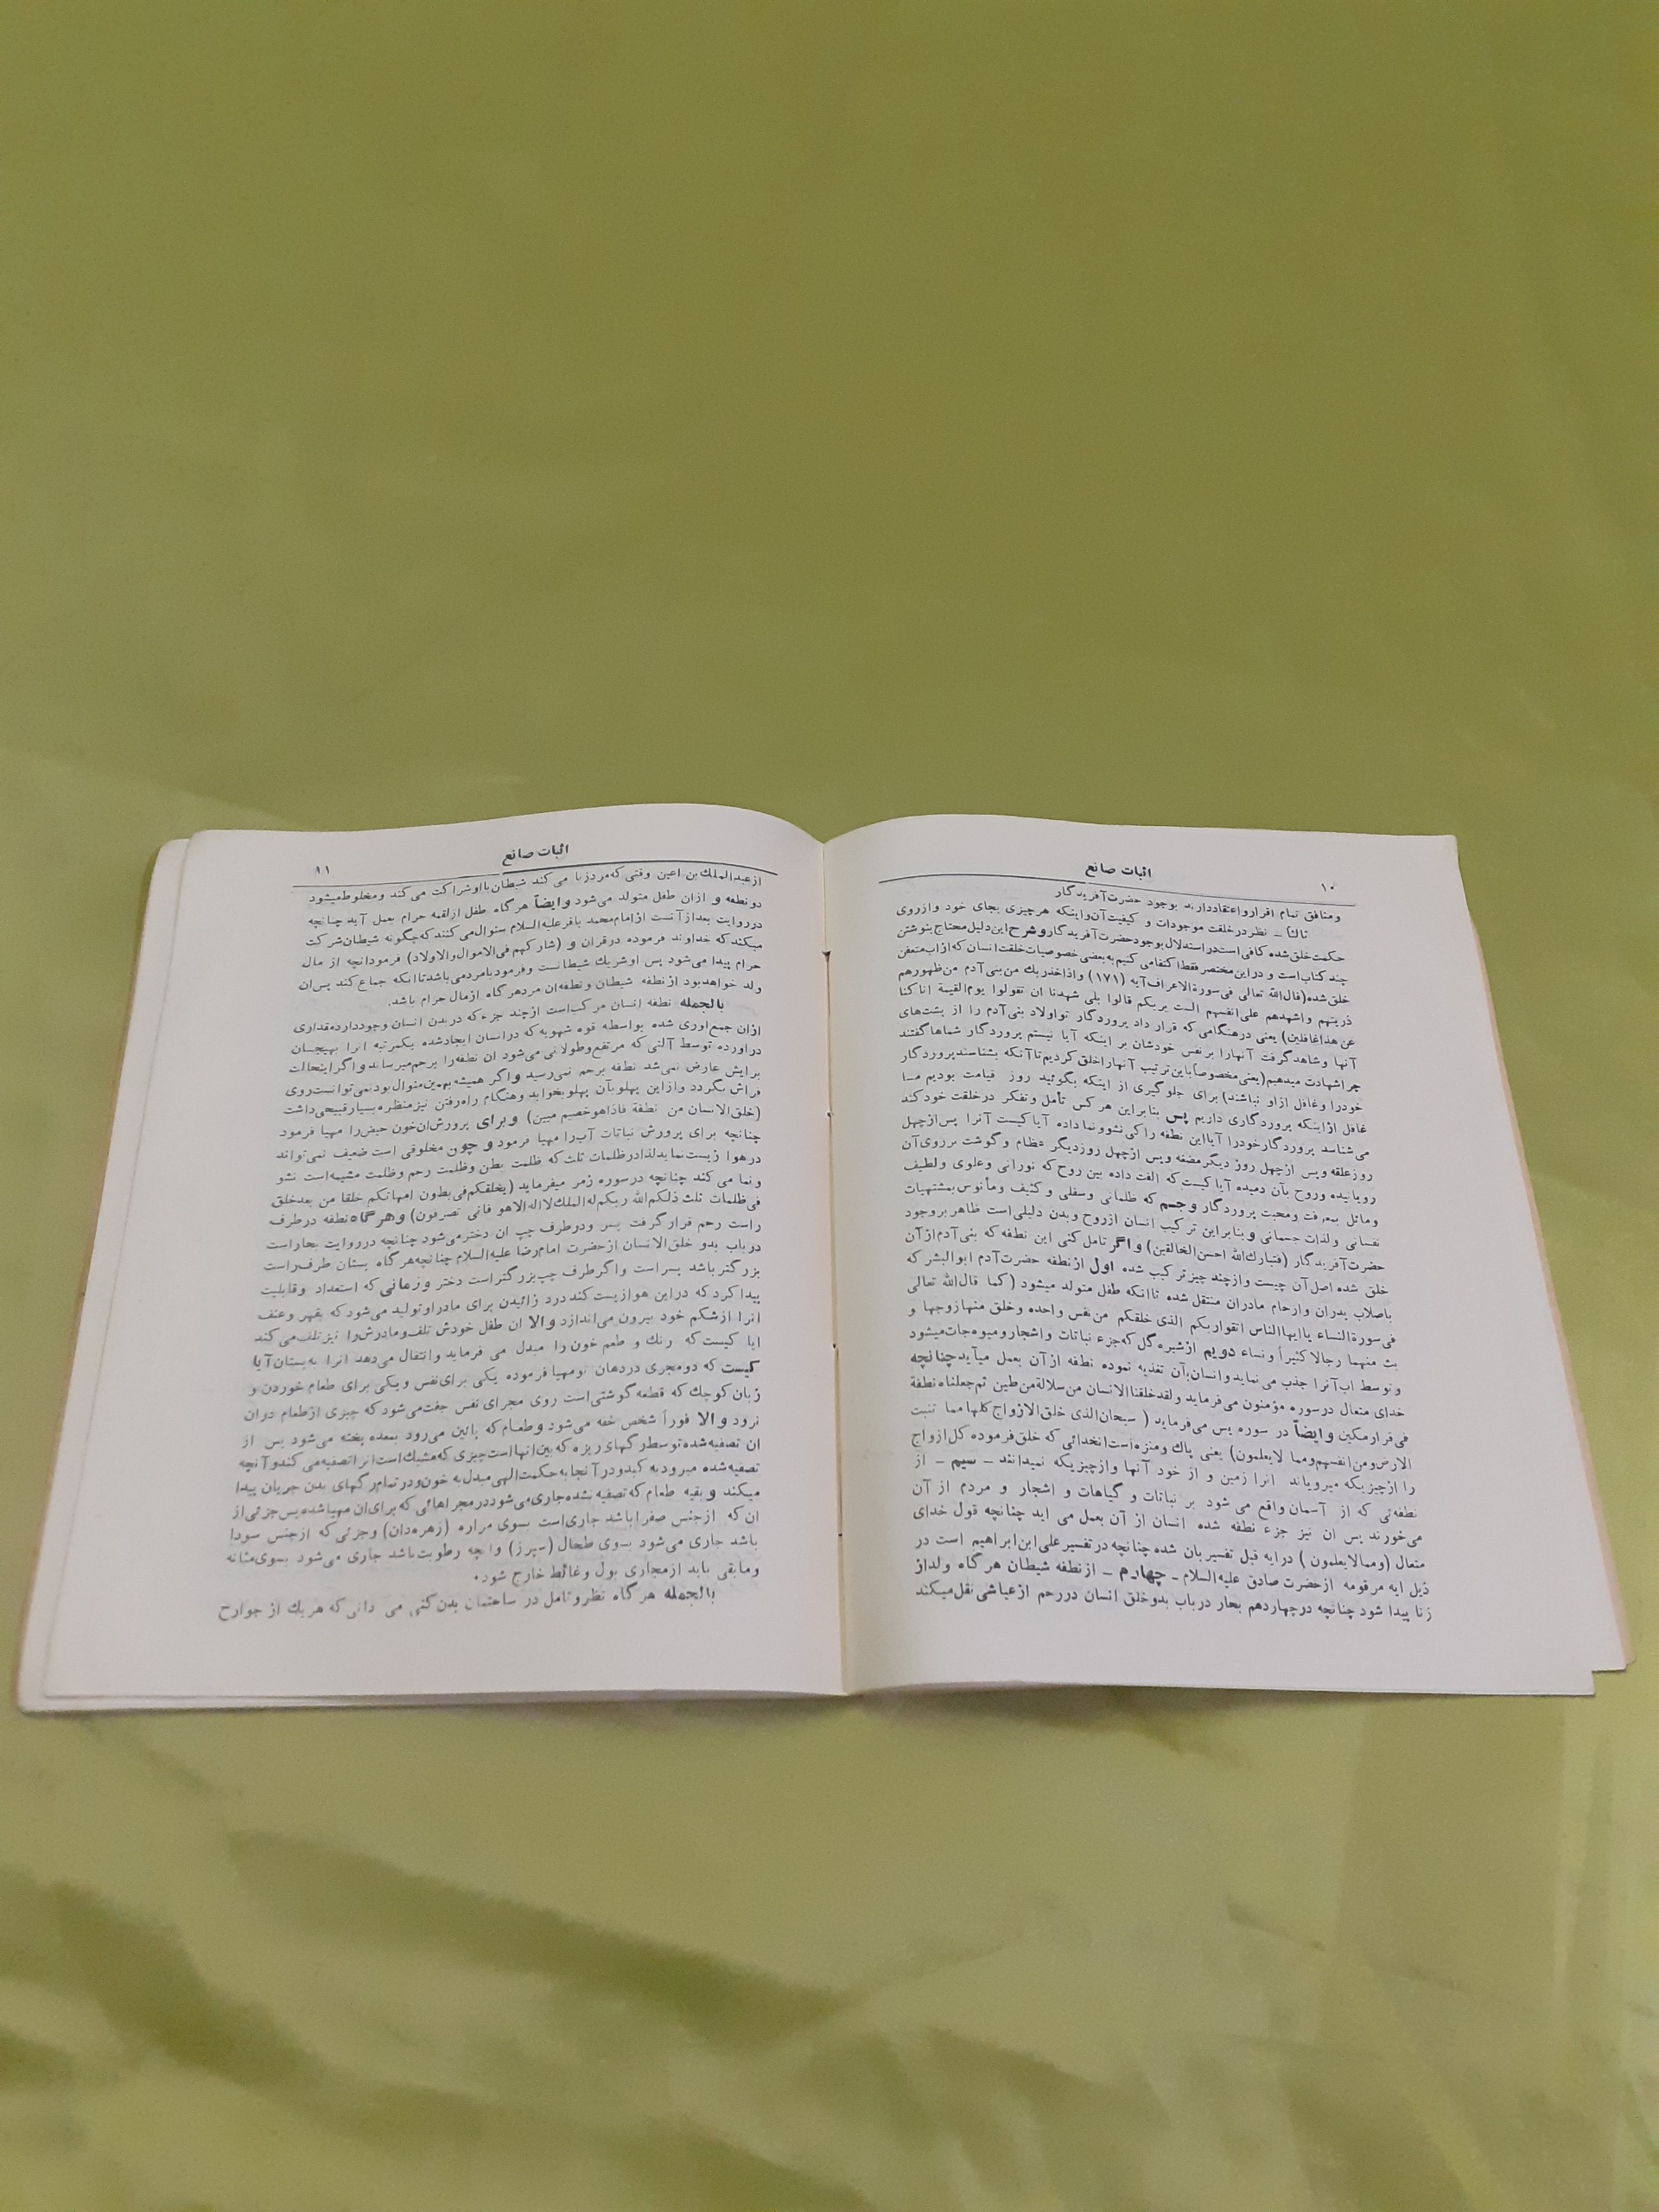 ۱۰
اثبات صانع
ومنافق تمام اقرار و اعتقاد دارند بوجود حضرت آفریدگار
ثالثاً ـ نظر در خلقت موجودات و کیفیت آن و اینکه هر چیزی بجای خود و از روی
حکمت خلق شده کافی است در استدلال بوجود حضرت آفریدگار و شرح این دلیل محتاج بنوشتن
چند کتاب است و در این مختصر فقط اکتفا می کنیم به بعضی خصوصیات خلقت انسان که از اب متعفن
خلق شده (قال الله تعالی فی سورة الاعراف آیه (۱۷۱) و اذ اخذ ربك من بنی آدم من ظهورهم
ذریتهم و اشهدهم علی انفسهم الست بربکم قالوا بلی شهدنا ان تقولوا یوم القیمة انا کنا
عن هذا غافلین) یعنی در هنگامی که قرار داد پروردگار تو اولاد بنی آدم را از پشت های
آنها و شاهد گرفت آنها را بر نفس خودشان بر اینکه آیا نیستم پروردگار شماها گفتند
چرا شهادت میدهیم (یعنی مخصوصاً باین ترتیب آنها را خلق کردیم تا آنکه بشناسند پروردگار
خود را و غافل از او نباشند) برای جلوگیری از اینکه بگوئید روز قیامت بودیم ما
غافل از اینکه پروردگاری داریم پس بنابراین هر کس تأمل و تفکر در خلقت خود کند
می شناسد پروردگار خود را آیا این نطفه را کی نشو و نما داده آیا کیست آنرا پس از چهل
روز علقه و پس از چهل روز دیگر مضغه و پس از چهل روز دیگر عظام و گوشت بر روی آن
رویانیده و روح بآن دمیده آیا کیست که الفت داده بین روح که نورانی و علوی و لطیف
و مائل بمعرفت و محبت پروردگار و جسم که ظلمانی و سفلی و کثیف و مأنوس بمشتهیات
نفسانی و لذات جسمانی و بنابراین ترکیب انسان از روح و بدن دلیلی است ظاهر بر وجود
حضرت آفریدگار (فتبارك الله احسن الخالقین) و اگر تامل کنی این نطفه که بنی آدم از آن
خلق شده اصل آن چیست و از چند چیز ترکیب شده اول از نطفه حضرت آدم ابوالبشر که
باصلاب پدران و ارحام مادران منتقل شده تا انکه طفل متولد میشود (کما قال الله تعالی
فی سورة النساء یا ایها الناس اتقوا ربکم الذی خلقکم من نفس واحده و خلق منها زوجها و
بث منهما رجالا کثیراً و نساء دویم از شیره گل که جزء نباتات و اشجار و میوه جات میشود
و توسط اب آنرا جذب می نماید و انسان بآن تغذیه نموده نطفه از آن بعمل میآید چنانچه
خدای متعال در سوره مؤمنون می فرماید و لقد خلقنا الانسان من سلالة من طین ثم جعلناه نطفة
فی قرار مکین و ایضاً در سوره یس می فرماید ( سبحان الذی خلق الازواج کلها مما تنبت
الارض و من انفسهم و مما لایعلمون) یعنی پاك و منزه است انخدائی که خلق فرموده کل ازواج
را از چیزیکه میرویاند انرا زمین و از خود آنها و از چیزیکه نمیدانند ـ سیم ـ از
نطفه ئی که از آسمان واقع می شود بر نباتات و گیاهات و اشجار و مردم از آن
می خورند پس ان نیز جزء نطفه شده انسان از آن بعمل می اید چنانچه قول خدای
متعال (ومما لایعلمون ) در ایه قبل تفسیر بان شده چنانچه در تفسیر علی ابن ابراهیم است در
ذیل ایه مرقومه از حضرت صادق علیه السلام ـ چهارم ـ از نطفه شیطان هر گاه ولد از
زنا پیدا شود چنانچه در چهاردهم بحار در باب بدو خلق انسان در رحم از عیاشی نقل میکند
۱۱
اثبات صانع
از عبدالملك بن اعین وقتی که مرد زنا می کند شیطان با او شراکت می کند و مخلوط میشود
دو نطفه و از ان طفل متولد می شود و ایضاً هر گاه طفل از لقمه حرام بعمل آید چنانچه
در روایت بعد از آنست از امام محمد باقر علیه السلام سئوال می کنند که چگونه شیطان شرکت
میکند که خداوند فرموده در قران و (شارکهم فی الاموال و الاولاد) فرمود انچه از مال
حرام پیدا می شود پس او شریك شیطانست و فرمود با مرد می باشد تا انکه جماع کند پس ان
ولد خواهد بود از نطفه شیطان و نطفه ان مرد هر گاه از مال حرام باشد.
بالجمله نطفه انسان مرکب است از چند جزء که در بدن انسان وجود دارد مقداری
از ان جمع اوری شده بواسطه قوه شهویه که در انسان ایجاد شده یکمرتبه انرا بهیجان
در اورده توسط آلتی که مرتفع و طولانی می شود ان نطفه را برحم میرساند و اگر اینحالت
برایش عارض نمی شد نطفه برحم نمی رسید و اگر همیشه بهمین منوال بود نمی توانست روی
فراش بگردد و از این پهلو بآن پهلو بخوابد و هنگام راه رفتن نیز منظره بسیار قبیحی داشت
(خلق الانسان من نطفة فاذا هو خصیم مبین) و برای پرورش ان خون حیض را مهیا فرمود
چنانچه برای پرورش نباتات آب را مهیا فرمود و چون مخلوقی است ضعیف نمی تواند
در هوا زیست نماید لذا در ظلمات ثلث که ظلمت بطن و ظلمت رحم و ظلمت مشیمه است نشو
و نما می کند چنانچه در سوره زمر میفرماید (یخلقکم فی بطون امهاتکم خلقا من بعد خلق
فی ظلمات ثلث ذلکم الله ربکم له الملك لا اله الا هو فانی تصرفون) و هر گاه نطفه در طرف
راست رحم قرار گرفت پسر و در طرف چپ ان دختر می شود چنانچه در روایت بحار است
در باب بدو خلق الانسان از حضرت امام رضا علیه السلام چنانچه هر گاه پستان طرف راست
بزرگتر باشد پسر است و اگر طرف چپ بزرگتر است دختر و زمانی که استعداد و قابلیت
پیدا کرد که در این هوا زیست کند درد زائیدن برای مادر او تولید می شود که بقهر و عنف
انرا از شکم خود بیرون می اندازد و الا ان طفل خودش تلف و مادرش را نیز تلف می کند
ایا کیست که رنك و طعم خون را مبدل می فرماید و انتقال می دهد انرا به پستان آیا
کیست که دو مجری در دهان تو مهیا فرموده یکی برای نفس و یکی برای طعام خوردن و
زبان کوچك که قطعه گوشتی است روی مجرای نفس جفت می شود که چیزی از طعام در ان
نرود و الا فوراً شخص خفه می شود و طعام که پائین می رود بمعده پخته می شود پس از
ان تصفیه شده توسط رگهای ریزه که بین انها است چیزی که مشبك است انرا تصفیه می کند و آنچه
تصفیه شده میرود به کبد و در آنجا به حکمت الهی مبدل به خون و در تمام رگهای بدن جریان پیدا
میکند و بقیه طعام که تصفیه نشده جاری می شود در مجراهائی که برای ان مهیا شده پس جزئی از
ان که از جنس صفرا باشد جاری است بسوی مراره (زهره دان) و جزئی که از جنس سودا
باشد جاری می شود بسوی طحال (سپرز) و انچه رطوبت باشد جاری می شود بسوی مثانه
و مابقی باید از مجاری بول و غائط خارج شود.
بالجمله هر گاه نظر و تامل در ساختمان بدن کنی می دانی که هر یك از جوارح